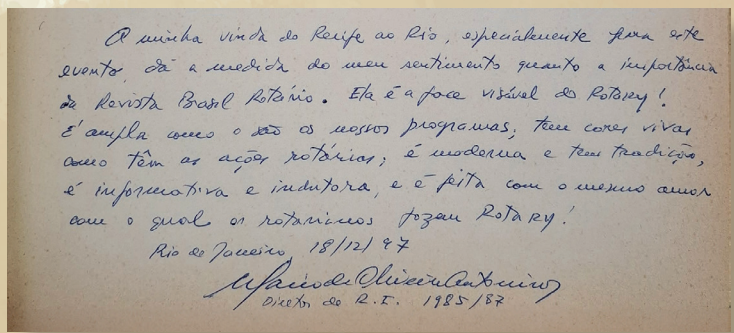 A minha vinda do Recife ao Rio, especialmente para este
evento, dá a medida do meu sentimento quanto a importância
da Revista Brasil Rotário. Ela é a face visável do Rotary!
É ampla como o são os nossos programas, tem cores vivas
como têm as ações rotárias; é moderna e tem tradição,
é informativa e indutora, e é feita com o mesmo amor
com o qual os rotarianos fazem Rotary!
Rio de Janeiro, 18/12/97
Mario de Oliveira Antonino
Diretor de R.I. 1985/87